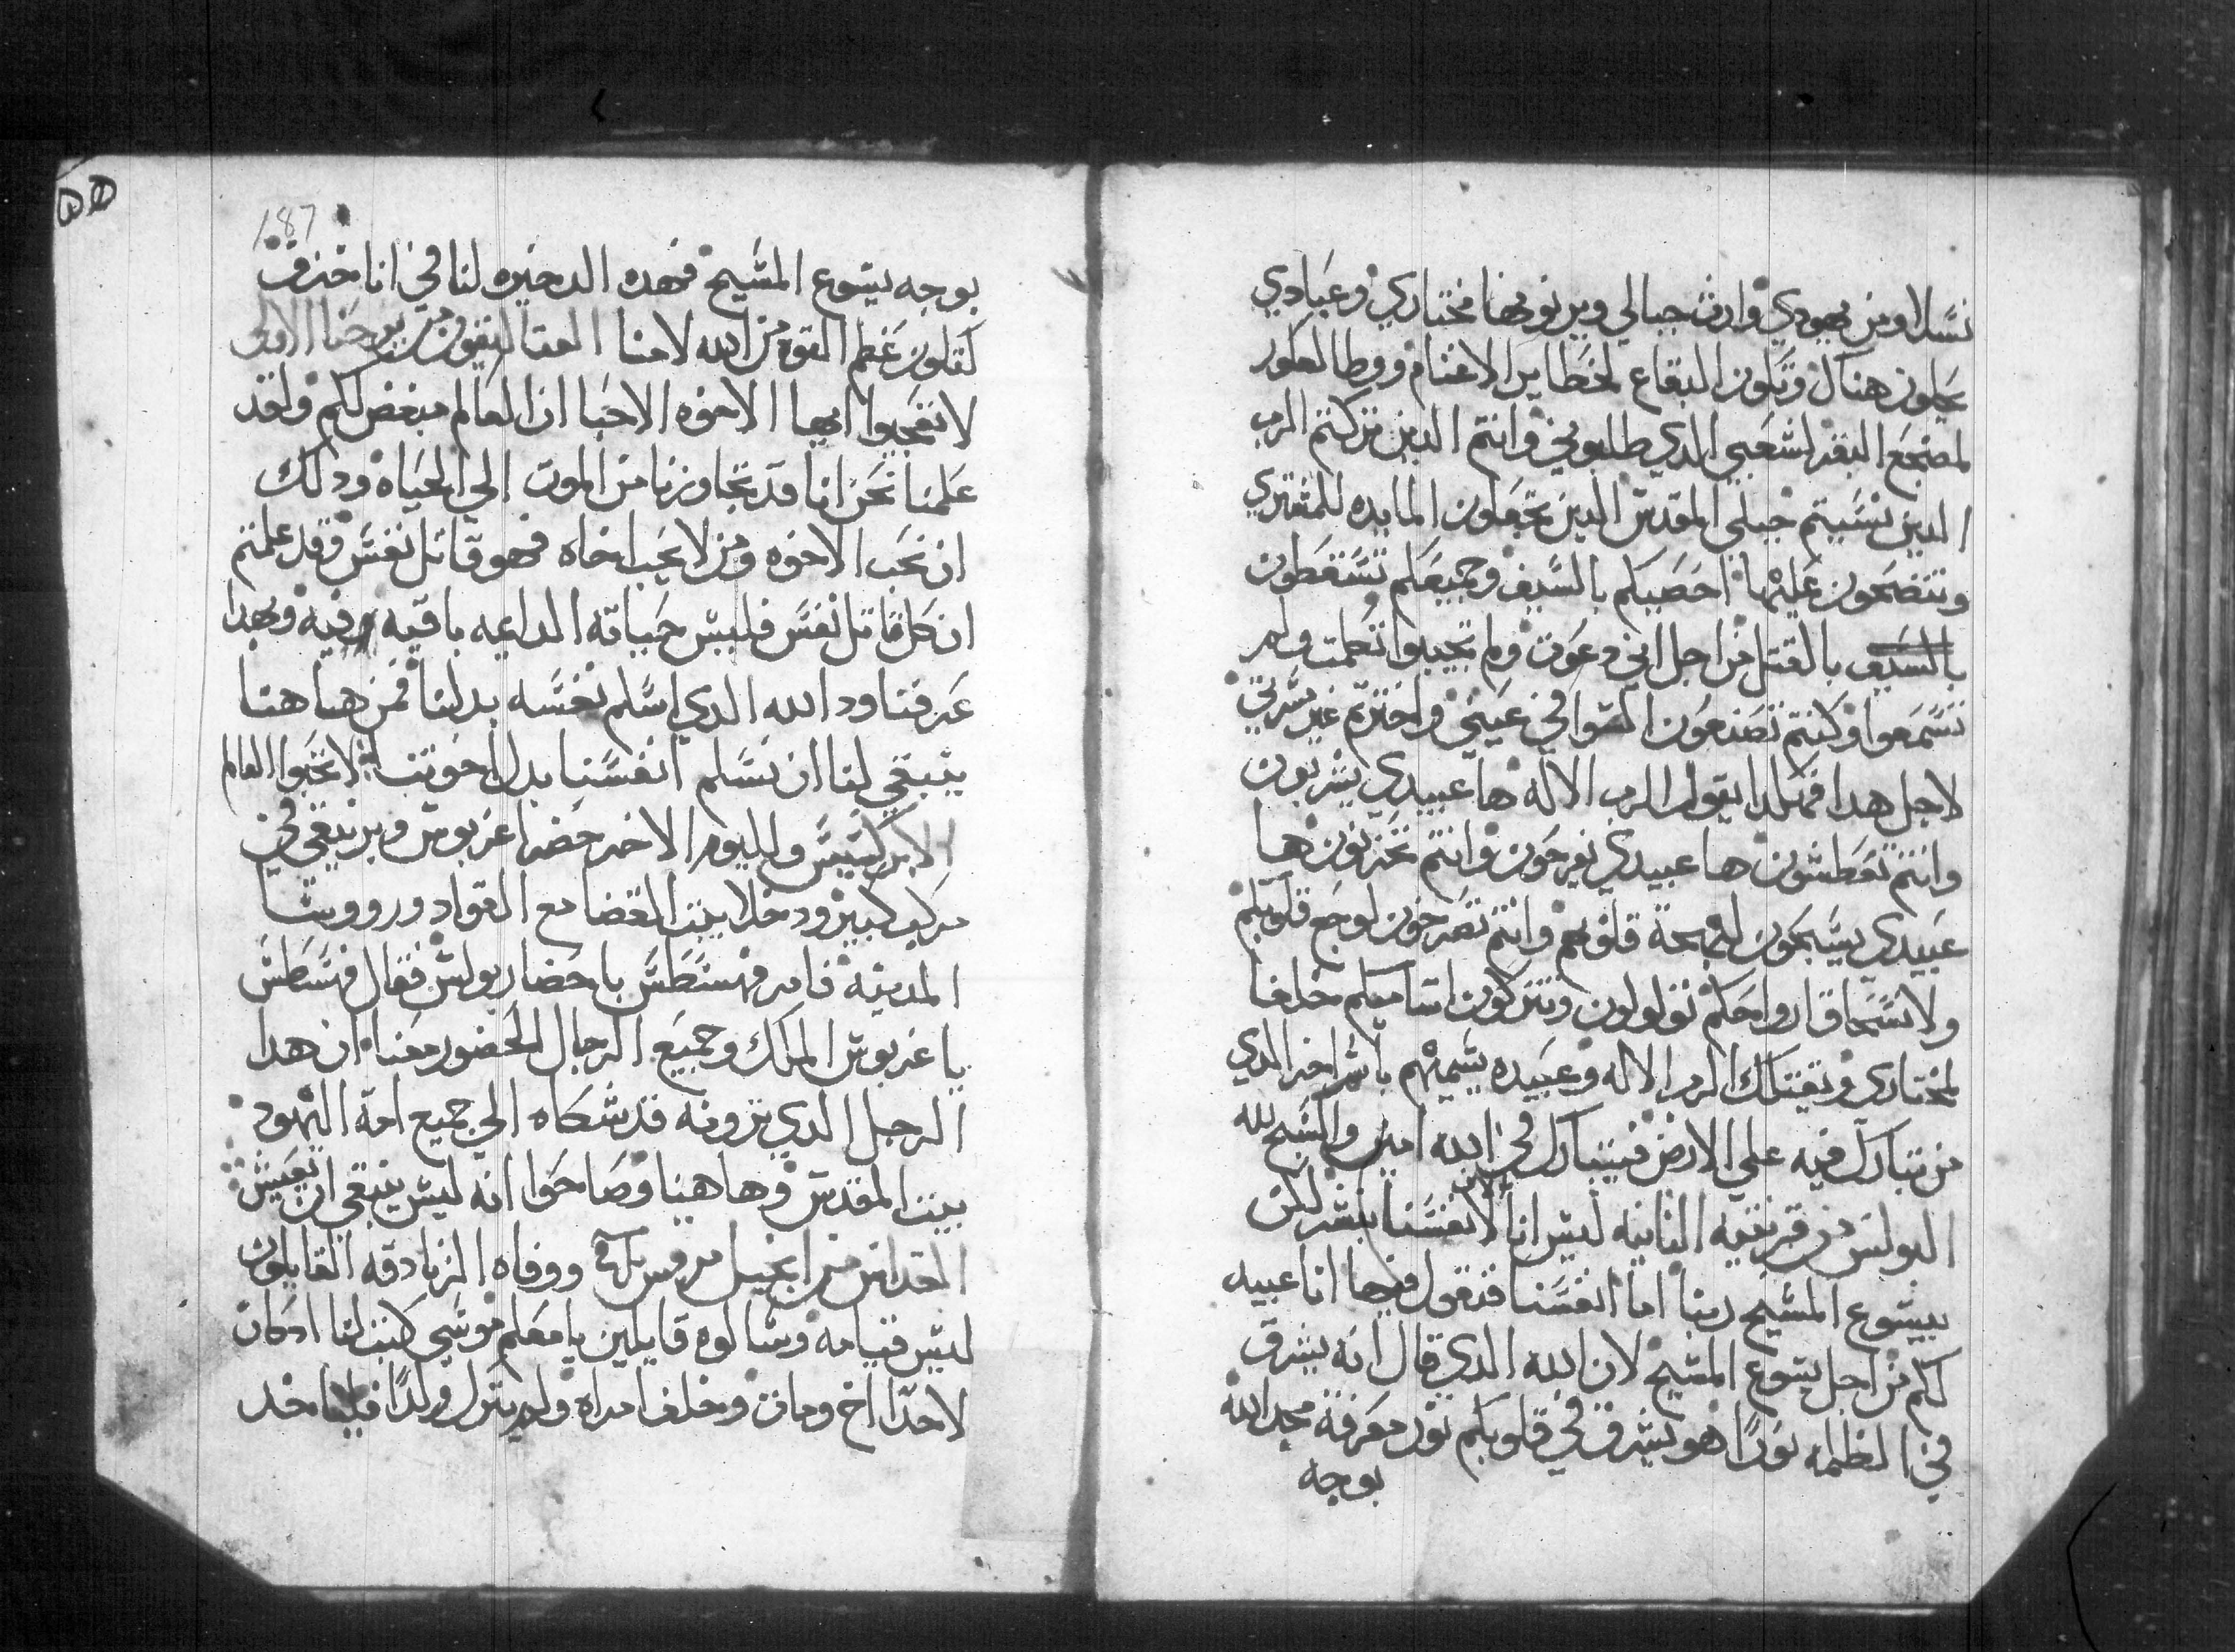 نسلا ومن يهودي وارث جبالي ويرثونها مختاري وعبادي
يحلون هناك وتكون البقاع لحظاير الاغنام ووطا العكور
لمضجع البقر لشعبي الدي طلبوني وانتم الدين تركتم الرب
الدين نسيتم جبلي المقدس الدين تجعلون المايده للمشتري
وتنضحون عليها احصيكم بالسيف وجميعكم تسقطون
بالسيف بالقتل من اجل اني دعوت ولم تجيبوا تكلمت ولم
تسمعوا وكنتم تصنعون السوا في عيني واخترتم غير مسرتي
لاجل هدا فهكدا يقول الرب الاله ها عبيدي يشربون
وانتم تعطشون ها عبيدي يفرحون وانتم تخزنون ها
عبيدي يسبحون لبهجة قلوبهم وانتم تصرخون لوجع قلوبكم
ولانسحاق ارواحكم تولولون وتتركون اسامیکم خلفا
لمختاري ويقتلك الرب الاله وعبيده يسميهم باسم اخر الدي
من تبارك فيه علي الارض فيتبارك في الله امين والسبح لله
البولس من قرنتيه الثانيه ليس انا لانفسنا نبشر لكن
بيسوع المسيح ربنا اما انفسنا فنقول فيها انا عبيد
لكم من اجل يسوع المسيح لان الله الدي قال انه يشرق
في الظلمه نورًا هو يشرق في قلوبكم نور معرفة مجد الله
بوجه
187
بوجه يسوع المسيح فهده الدخيره لنا في انا خزف
لتكون عظم القوه من الله لا منا القتاليقون من يوحنا الاولي
لا تعجبوا ايها الاخوه الاحبا ان العالم مبغض لكم ولقد
علمنا نحن انا قد تجاوزنا من الموت الي الحياه ودلك
ان نحب الاخوه ومن لا يحب اخاه فهو قاتل نفس وقد علمتم
ان كل قاتل نفس فليس حياته الدايمه باقيه فيه وبهدا
عرفنا ود الله الدي اسلم نفسه بدلنا فمن هاهنا
ينبغي لنا ان نسلم انفسنا بدل اخوتنا لا تحبوا العالم
الابركسيس واليوم الاخر حضر اغربوس وبرنيقي في
مركب كبير ودخلا بيت القضا مع القواد وروسا
المدينه فامر فهسطس باحضار بولس فقال فهسطس
يا اغربوس الملك وجميع الرجال الحضور معنا ان هدا
الرجل الدي ترونه قد شكاه الي جميع امة اليهود
بيت المقدس وهاهنا وصاحوا انه ليس ينبغي ان يعيش
القداس من انجيل مرقس ووفاه الزنادقه القايلون
ليس قيامه وسالوه قايلين يا معلم موسي كتب لنا ان كان
لاحدًا اخ ومات وخلف امراه ولم يترك ولدًا فلياخد